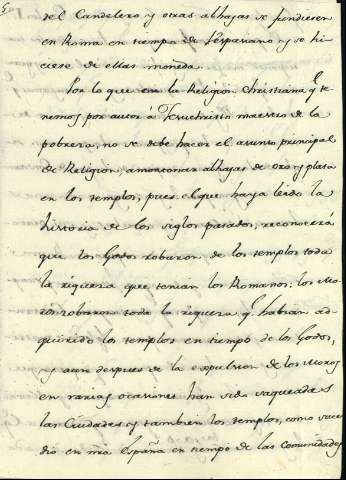 del Candelero y otras alhajas se fundiesen
en Roma en tiempo de Vespaciano y se hi-
ciese de ellas moneda.
Por lo que en la Religion Christiana qe te
nemos por autor á Jesuchristo maestro de la
pobreza, no se debe hacer el asunto principal
de Religion, amontonar alhajas de oro y plata
en los templos; pues el que haya leido la
historia de los siglos pasados, reconocerá
que los Godos robaron de los templos toda
la riqueza que tenian los Romanos; los Mo
ros robaron toda la riqueza qe habian ad-
quirido los templos en tiempo de los Godos,
y aun despues de la expulsion de los Moros
en varias ocasiones han sido saqueadas
las Ciudades y tambien los templos, como suce
dio en nra España en tiempo de las Comunidades